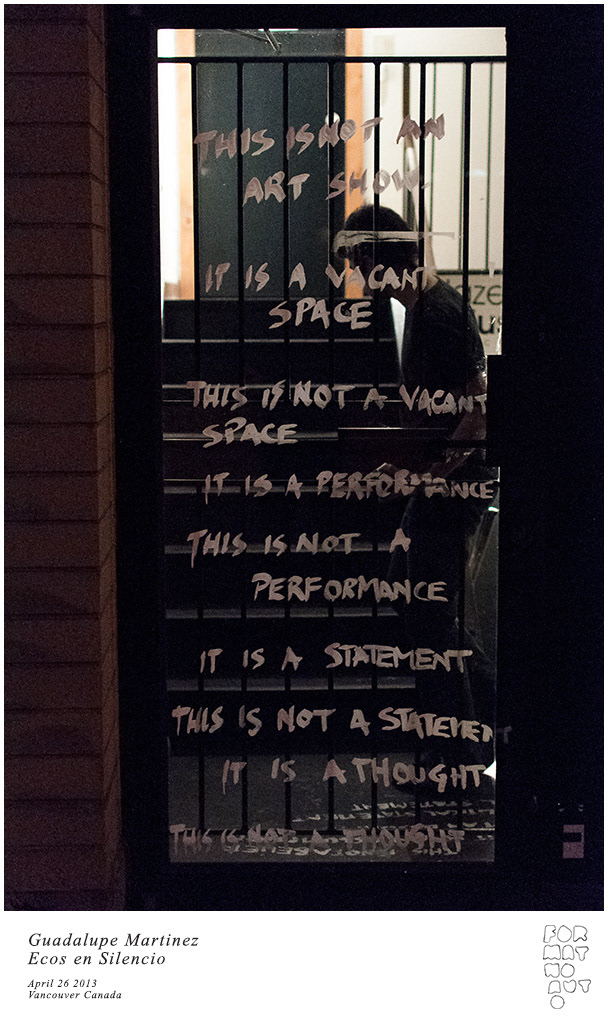 THIS IS NOT AN
ART SHOW.
IT IS A VACANT
SPACE
THIS IS NOT A VACANT
SPACE
IT IS A PERFORMANCE
THIS IS NOT A
PERFORMANCE
IT IS A STATEMENT
THIS IS NOT A STATEMENT
IT IS A THOUGHT
THIS IS NOT A THOUGHT
Guadalupe Martinez
Ecos en Silencio
April 26 2013
Vancouver Canada
FOR
MAT
NO
AUT
O